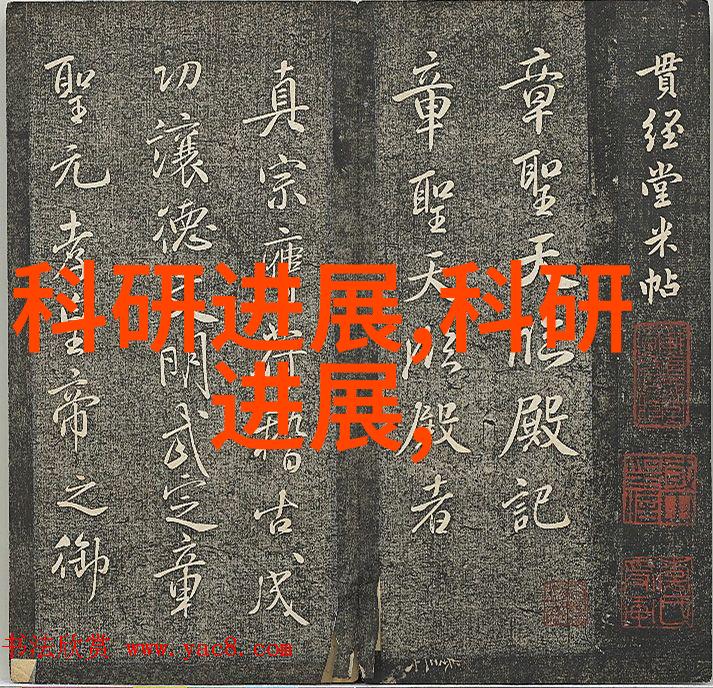 科研进展,科研
进展,
貫經堂米帖
章聖天臨殿記
章聖天臨殿者
真宗膺符稽古成
功讓德文明武定章
聖元孝皇帝之御
书法欣赏 www.yac8.com